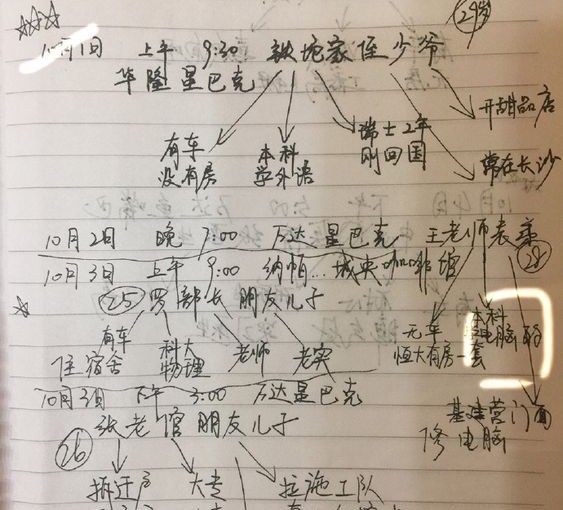 29岁
10月1日 上午 9:30 铁坨家侄少爷
华隆星巴克
开甜品店
有车 没有房
本科 学外语
瑞士2年 刚回国
常在长沙
10月2日 晚 7:00 万达星巴克 王老师表弟
28
10月3日 上午 9:00 纳帕…城央咖啡馆
25 罗部长朋友儿子
有车 住宿舍
科大 物理
老师
老实
无车 恒大有房一套
本科 电脑的
10月3日 下午 3:00 万达星巴克
张老倌朋友儿子
26
基建营门面 修电脑
拆迁户
大专
拉施工队